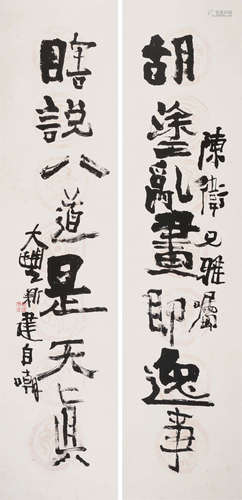 胡塗亂畫即逸事
陳衛兄雅囑
瞎説八道是天真
大豐新建自嘲